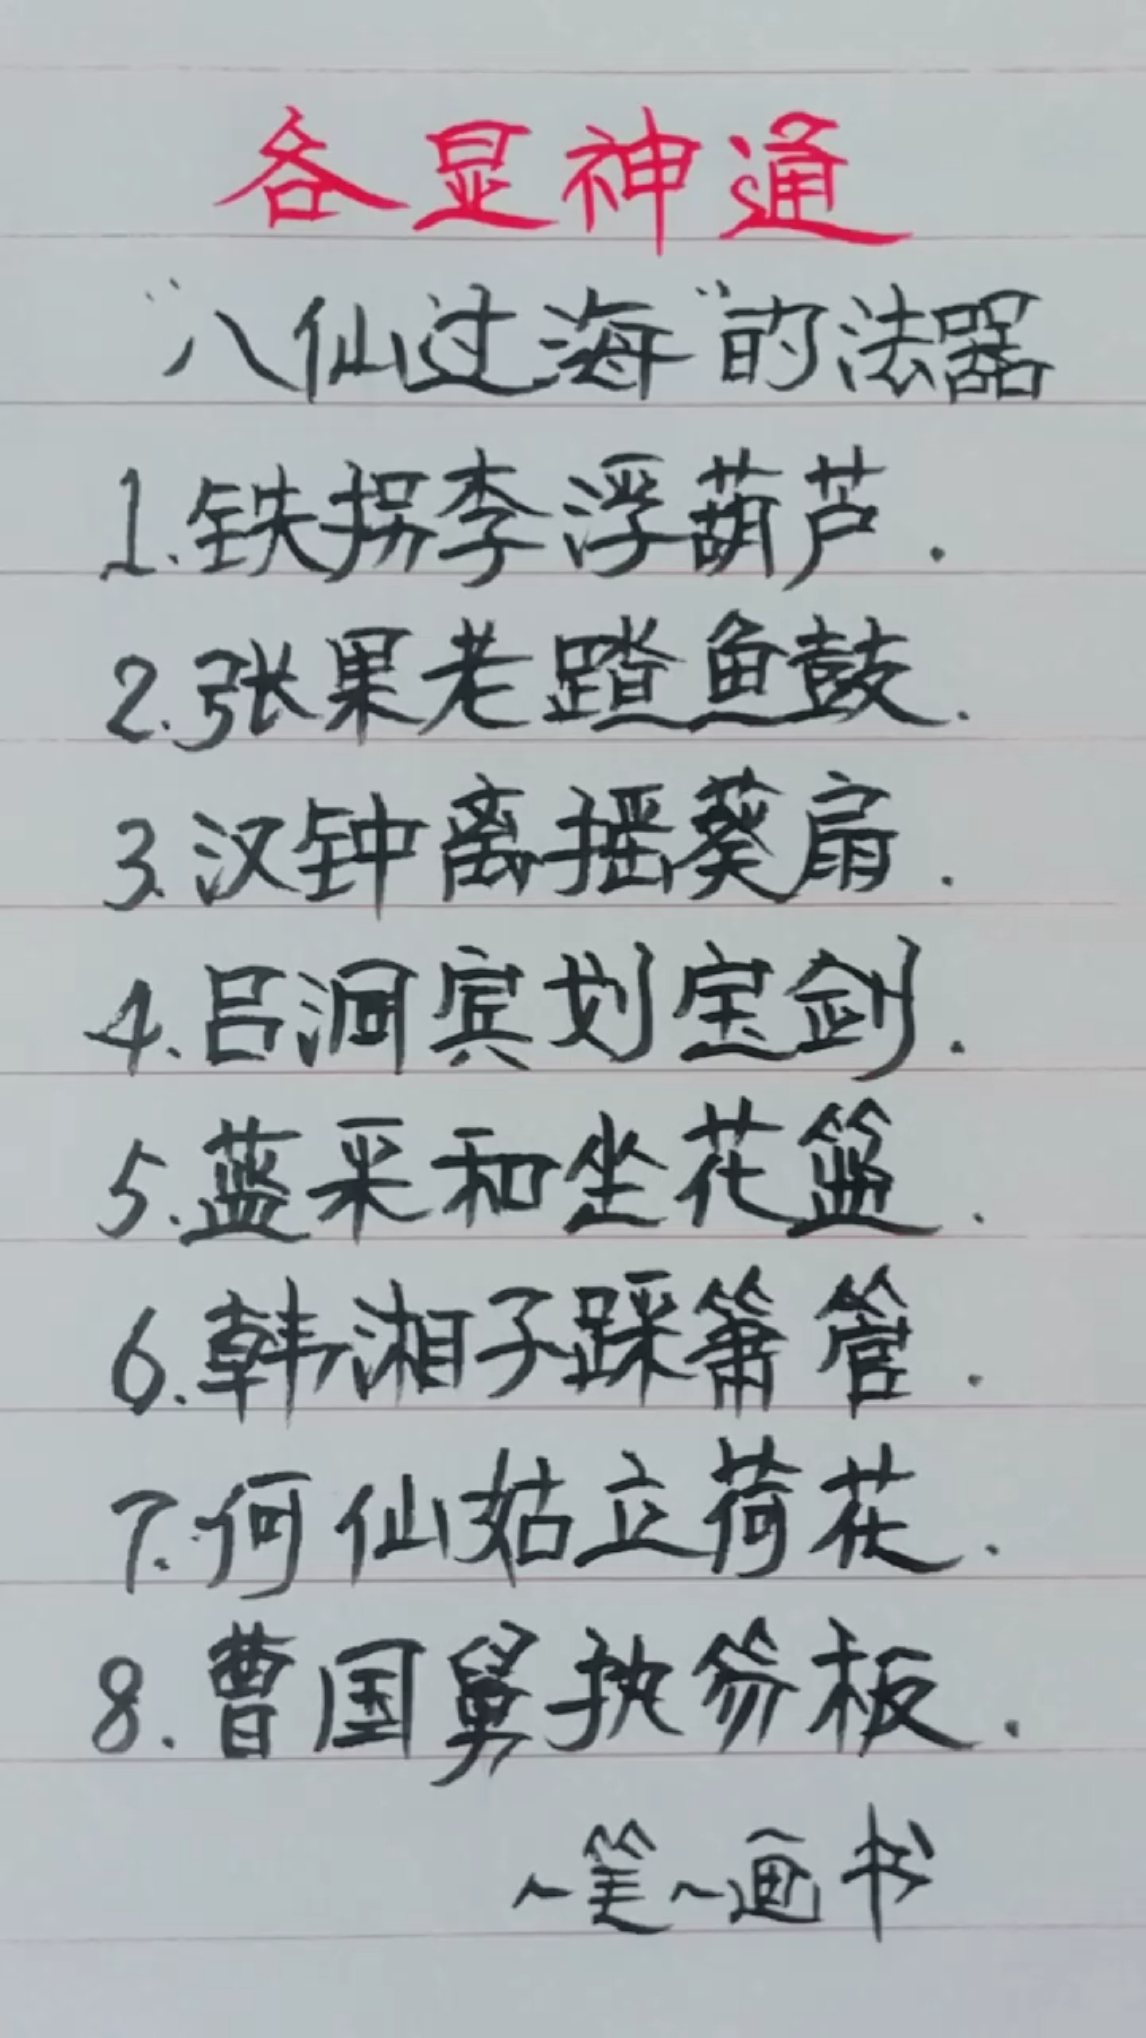 各显神通
“八仙过海”的法器
1.铁拐李浮葫芦.
2.张果老蹬鱼鼓.
3.汉钟离摇葵扇.
4.吕洞宾划宝剑.
5.蓝采和坐花篮.
6.韩湘子踩箫管.
7.何仙姑立荷花.
8.曹国舅执笏板.
一笔一画书